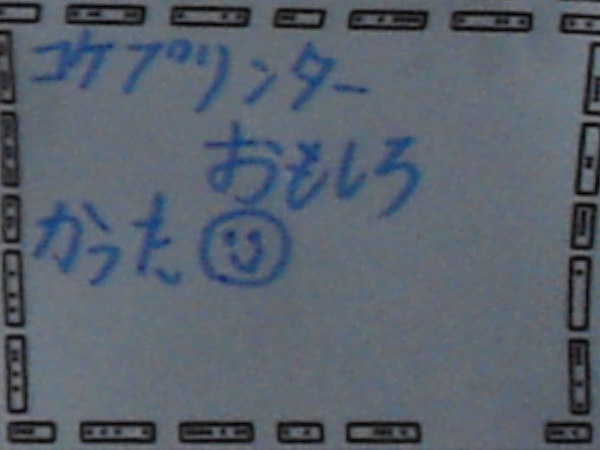 コケプリンター
おもしろ
かった